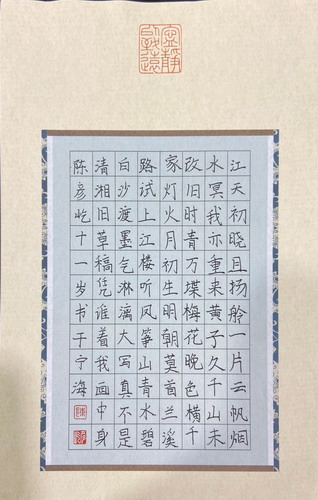 寧靜
致遠
江天初晓且扬舲一片云帆烟
水冥我亦重来黄子久千山未
改旧时青万堞梅花晚色横千
家灯火月初生明朝莫首兰溪
路试上江楼听风筝山青水碧
白沙渡墨气淋漓大写真不是
清湘旧草稿凭谁着我画中身
陈彦屹十一岁书于宁海